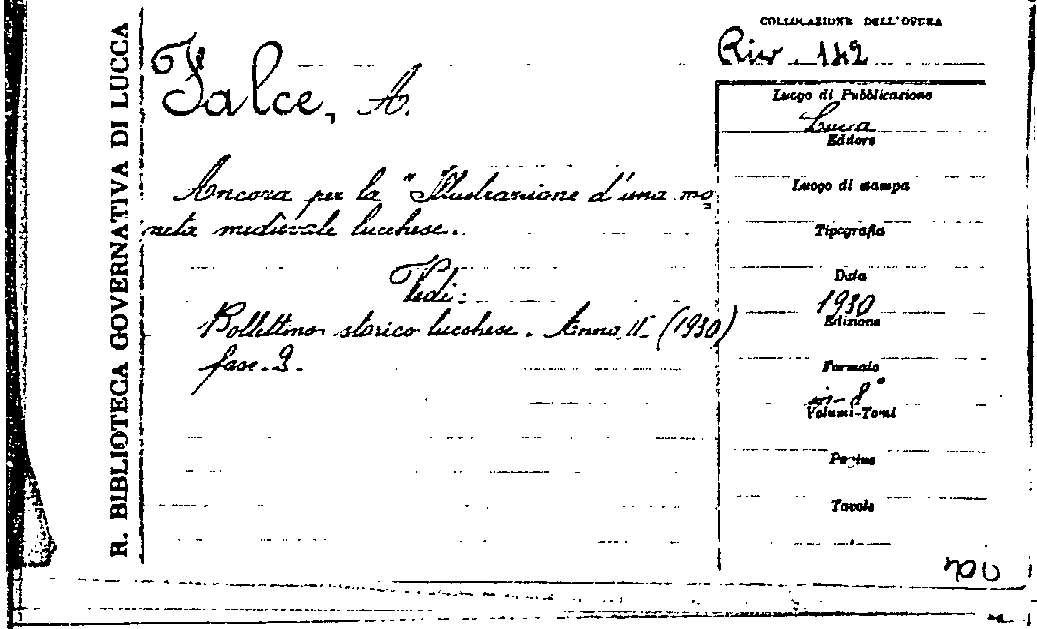 R. BIBLIOTECA GOVERNATIVA DI LUCCA
COLLOCAZIONE DELL'OPERA
Riv. 142
Falce, A.
Ancora per la "Illustrazione d'una mo
neta medievale lucchese.
Vedi:
Bollettino storico lucchese. Anno II (1930)
fasc. 2.
Luogo di Pubblicazione
Lucca
Editore
Luogo di stampa
Tipografia
Data
1930
Edizione
Formato
in-8°
Volumi-Tomi
Pagine
Tavole